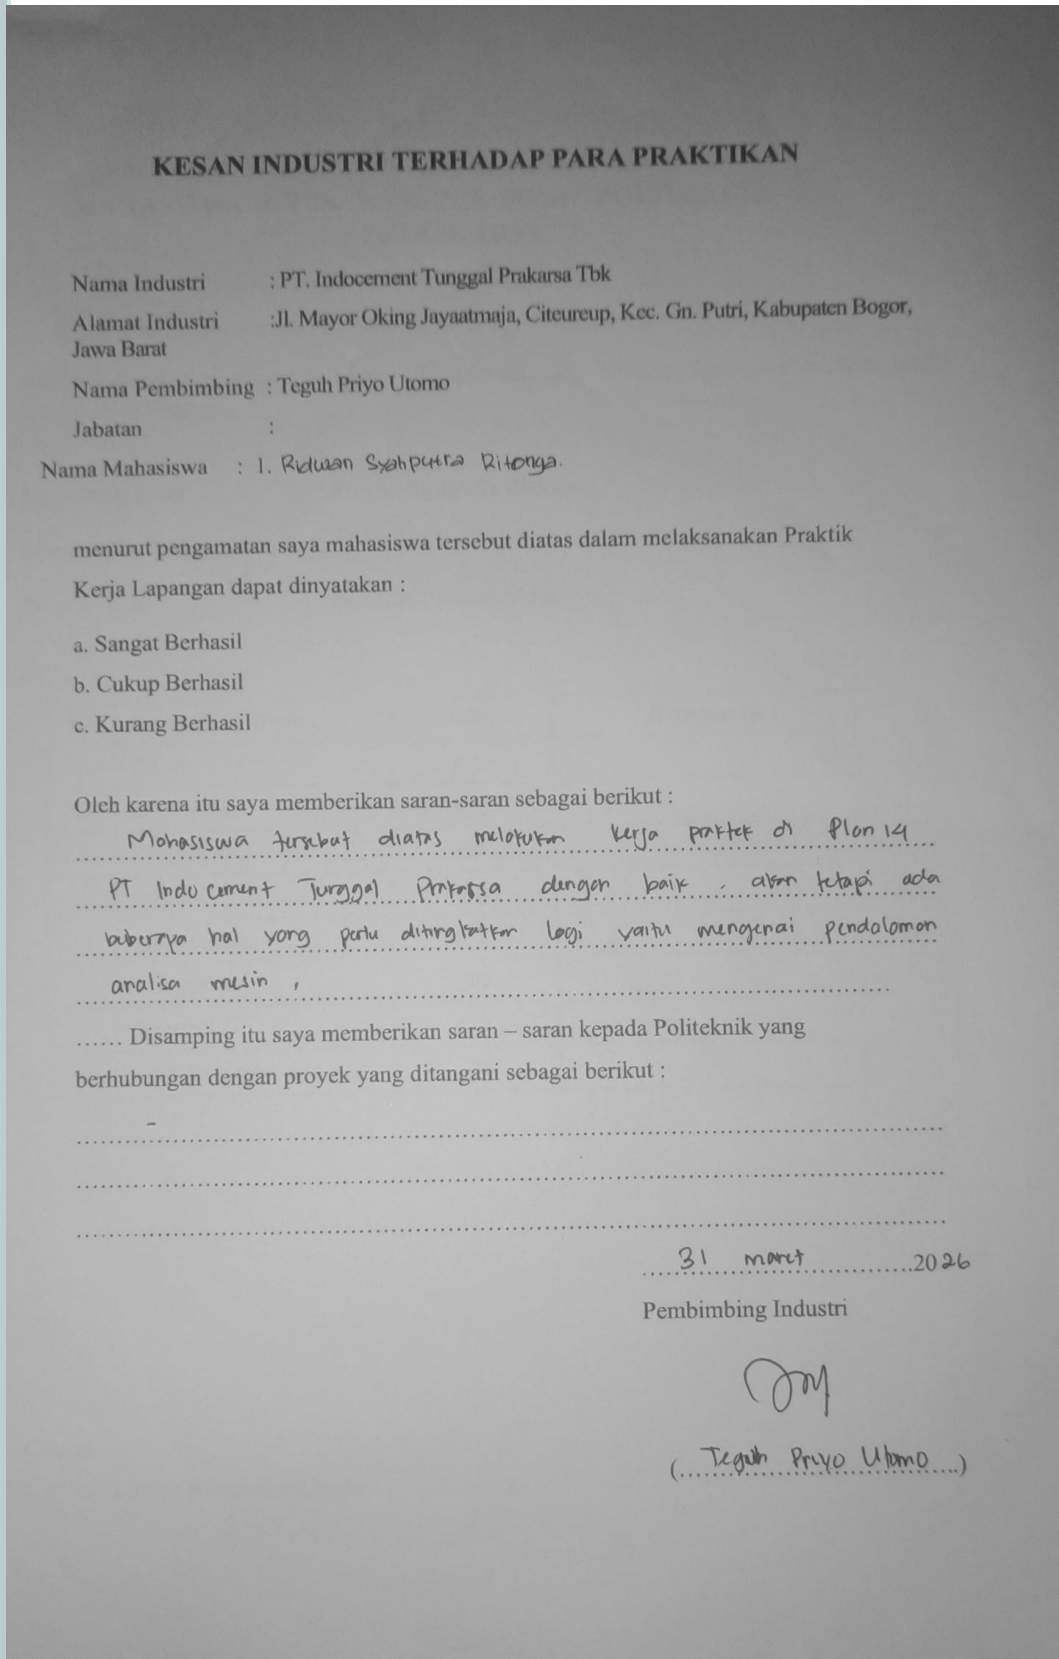 KESAN INDUSTRI TERHADAP PARA PRAKTIKAN
Nama Industri : PT. Indocement Tunggal Prakarsa Tbk
Alamat Industri :Jl. Mayor Oking Jayaatmaja, Citeureup, Kec. Gn. Putri, Kabupaten Bogor,
Jawa Barat
Nama Pembimbing : Teguh Priyo Utomo
Jabatan :
Nama Mahasiswa : 1. Ridwan Syahputra Ritonga.
menurut pengamatan saya mahasiswa tersebut diatas dalam melaksanakan Praktik
Kerja Lapangan dapat dinyatakan :
a. Sangat Berhasil
b. Cukup Berhasil
c. Kurang Berhasil
Oleh karena itu saya memberikan saran-saran sebagai berikut :
Mahasiswa tersebut diatas melakukan kerja praktek di Plan 14
PT Indocement Tunggal Prakarsa dengan baik, akan tetapi ada
beberapa hal yang perlu ditingkatkan lagi yaitu mengenai pendalaman
analisa mesin,
...... Disamping itu saya memberikan saran – saran kepada Politeknik yang
berhubungan dengan proyek yang ditangani sebagai berikut :
-
31 maret 2026
Pembimbing Industri
(Teguh Priyo Utomo)